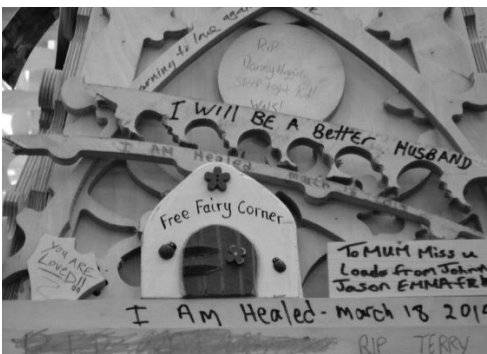 arning to love again
RIP
Danny Higgins
Sleep tight
I WILL BE A BeTTer HUSBAND
I AM Healed march
Free Fairy Corner
YOU ARE
LoveD!!
To MUM Miss u
Loads from John
Jason EMMA
I AM Healed - march 18 201
RIP TERRY